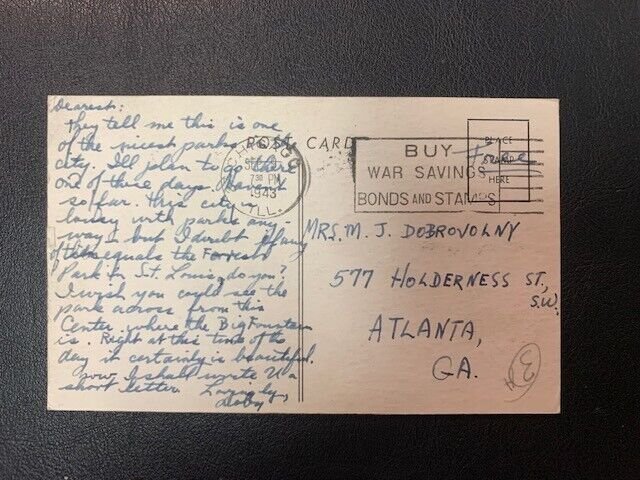 Dearest:
They tell me this is one
of the nicest parks in the
city. I'll plan to go there
one of these days. Haven't
so far. This city is
lousy with parks any-
way, but I doubt if any
of them equals the Forrest
Park in St. Louis, do you?
I wish you could see the
park across from this
Center where the Big Fountain
is. Right at this time of the
day it certainly is beautiful.
Now I shall write U a
short letter. Lovingly,
Doby
POST CARD
CHICAGO
SEP
7 30 PM
1943
ILL.
BUY
WAR SAVINGS
BONDS AND STAMPS
PLACE
STAMP
HERE
Free
MRS. M. J. DOBROVOLNY
577 HOLDERNESS ST.,
S.W.
ATLANTA,
GA.